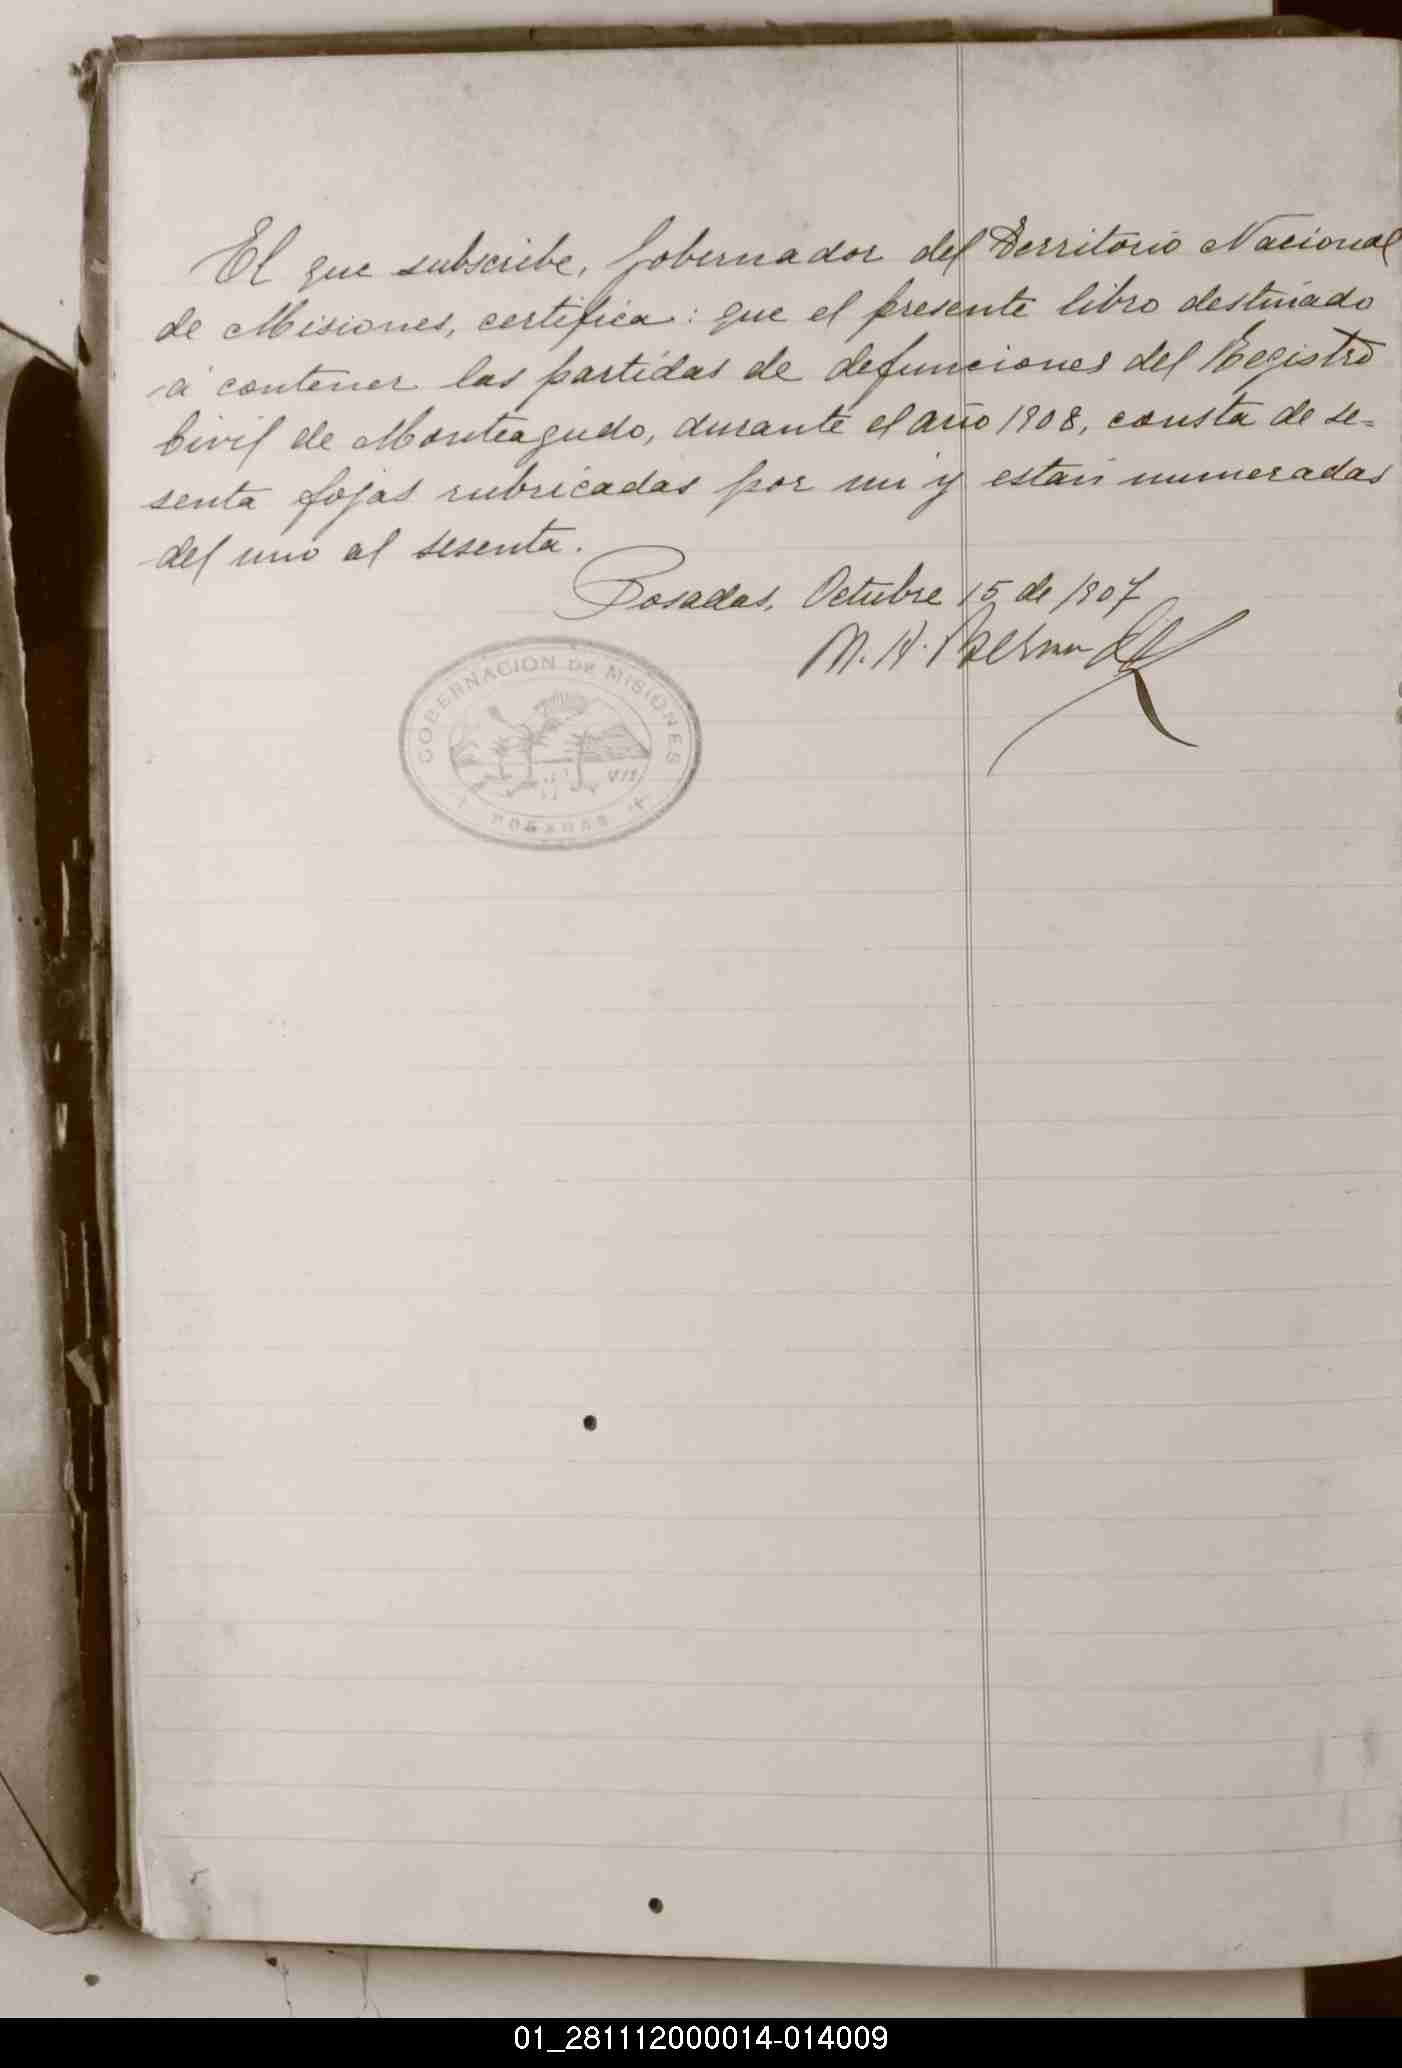 El que subscribe, Gobernador del Territorio Nacional
de Misiones, certifica: que el presente libro destinado
á contener las partidas de defunciones del Registro
Civil de Monteagudo, durante el año 1908, consta de se=
senta fojas rubricadas por mi y están numeradas
del uno al sesenta.
Posadas, Octubre 15 de 1907
GOBERNACION DE MISIONES
POSADAS
01_281112000014-014009